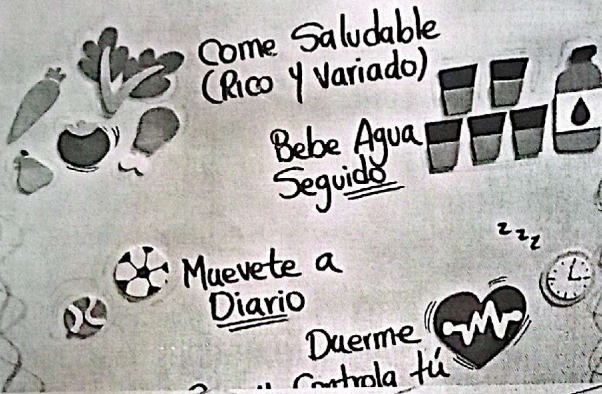 Come Saludable
(Rico y Variado)
Bebe Agua
Seguido
zzz
Muevete a
Diario
Duerme
Controla tú